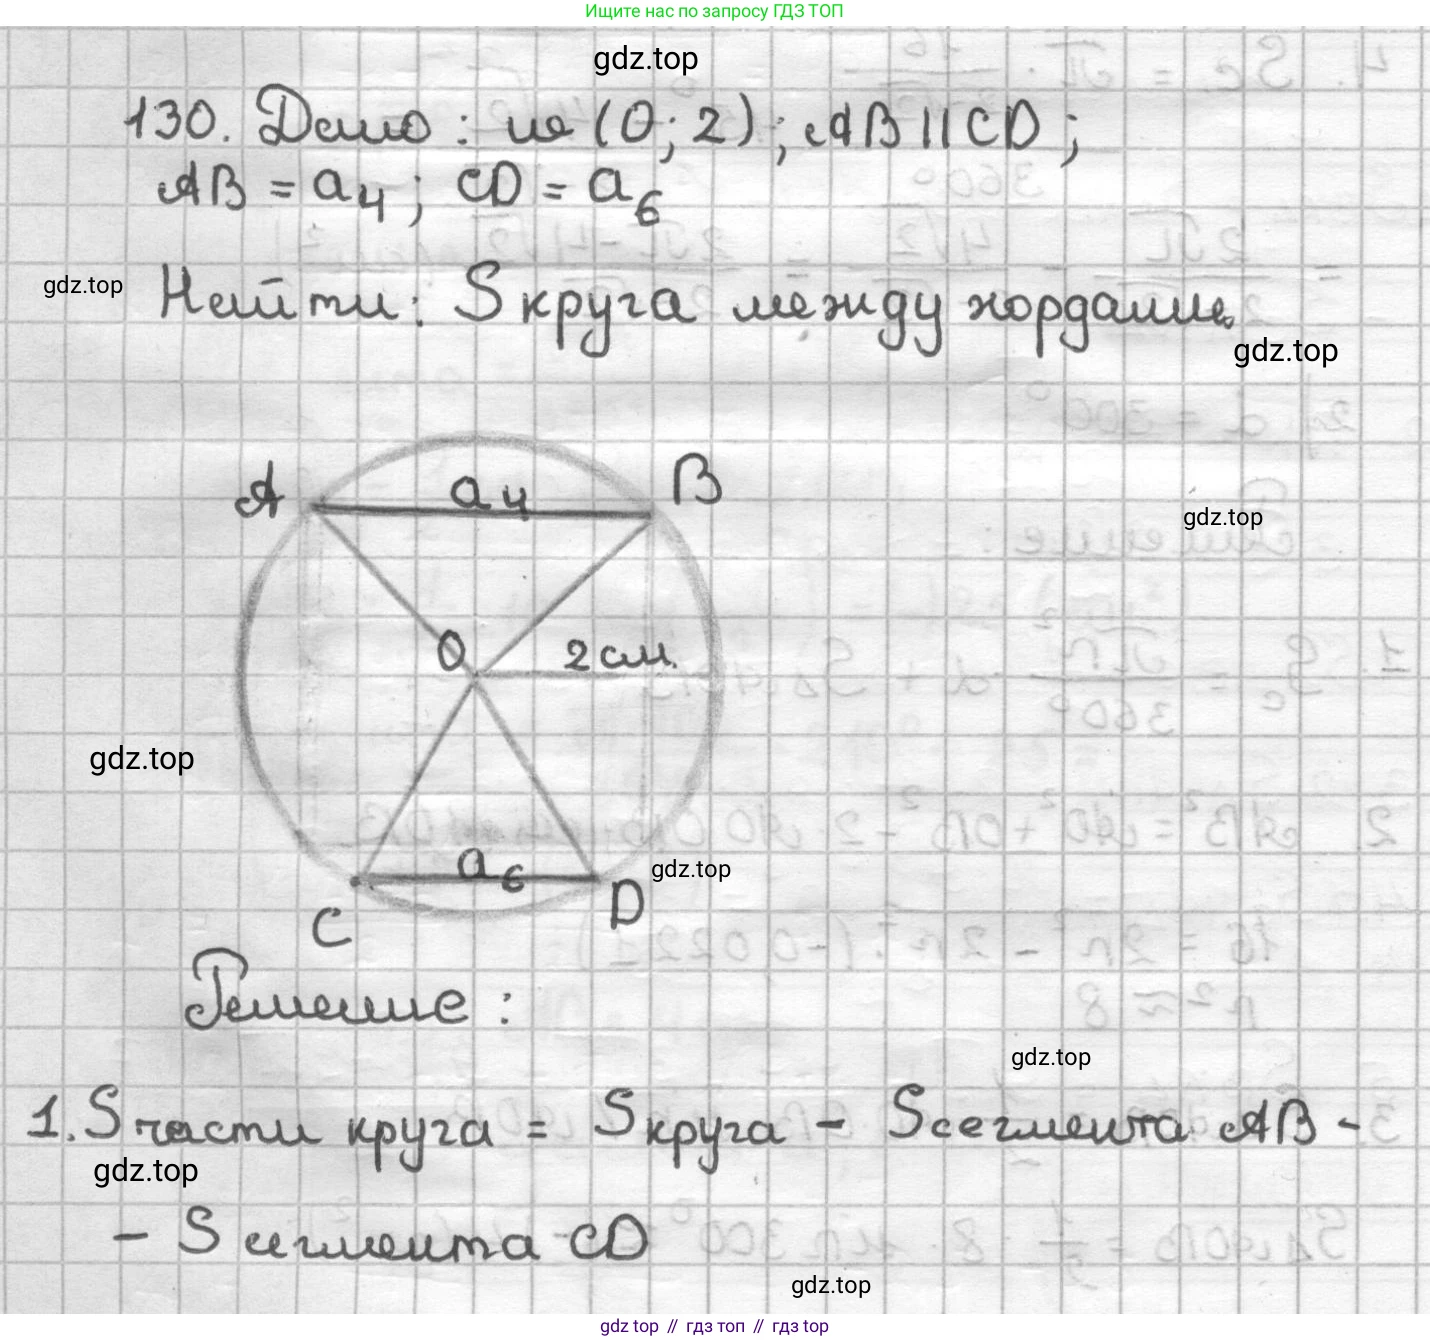 Ищите нас по запросу ГДЗ ТОП
gdz.top
130. Дано: ω (O; 2); AB || CD;
AB = a₄; CD = a₆
gdz.top
Найти: S круга между хордами.
gdz.top
A a₄ B
gdz.top
O 2 см.
gdz.top
a₆
gdz.top
C D
Решение:
gdz.top
1. S части круга = S круга - S сегмента AB -
gdz.top
- S сегмента CD
gdz.top
gdz top // гдз топ // gdz top